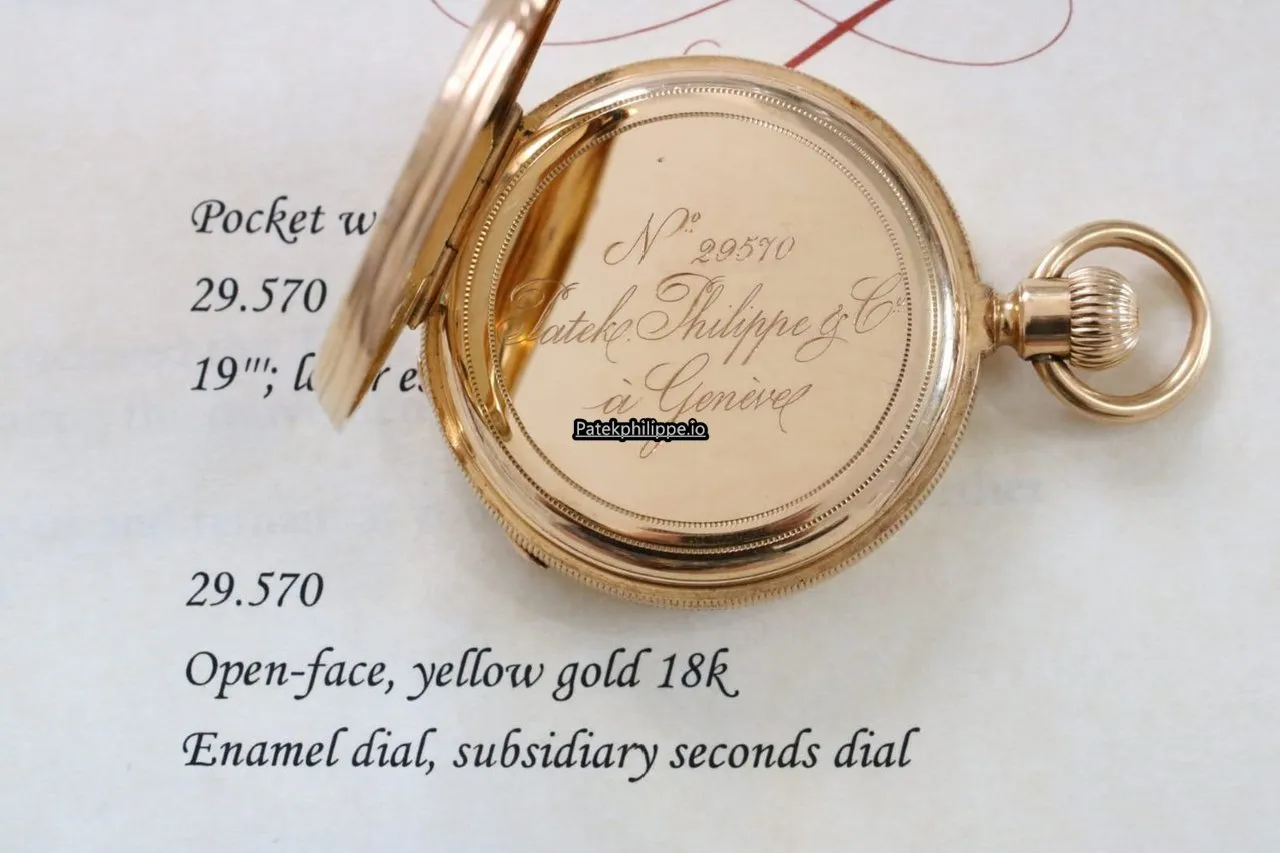 Pocket w
29.570
19'''; l r es
29.570
Open-face, yellow gold 18k
Enamel dial, subsidiary seconds dial
No 29570
Patek. Philippe & Co
à Genève
Patekphilippe.io